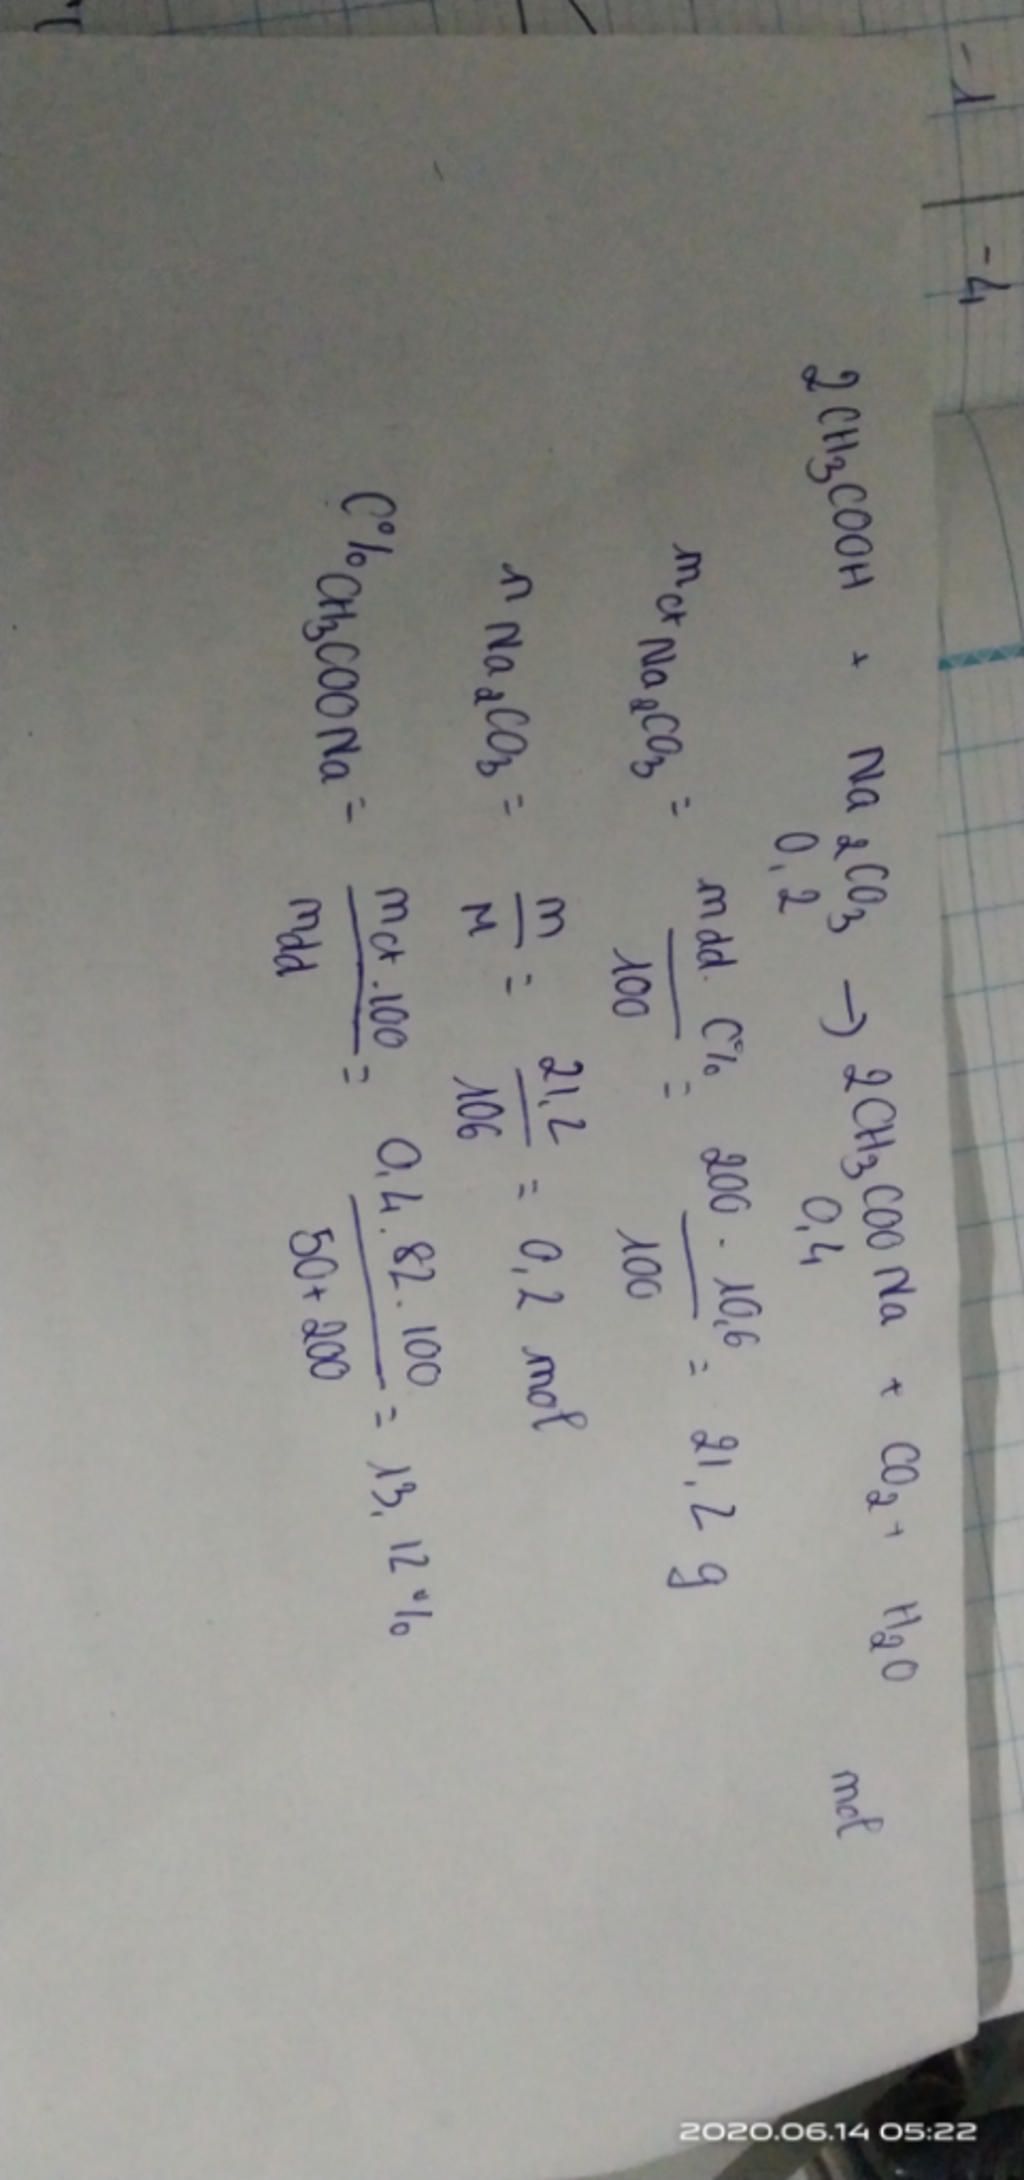 -1 -4
2CH3COOH + Na2CO3 → 2CH3COONa + CO2 + H2O
0,2 0,4 mol
mct Na2CO3 = mdd. C% / 100 = 200 . 10,6 / 100 = 21,2 g
n Na2CO3 = m / M = 21,2 / 106 = 0,2 mol
C% CH3COONa = mct .100 / mdd = 0,4. 82. 100 / 50+ 200 = 13,12%
2020.06.14 05:22